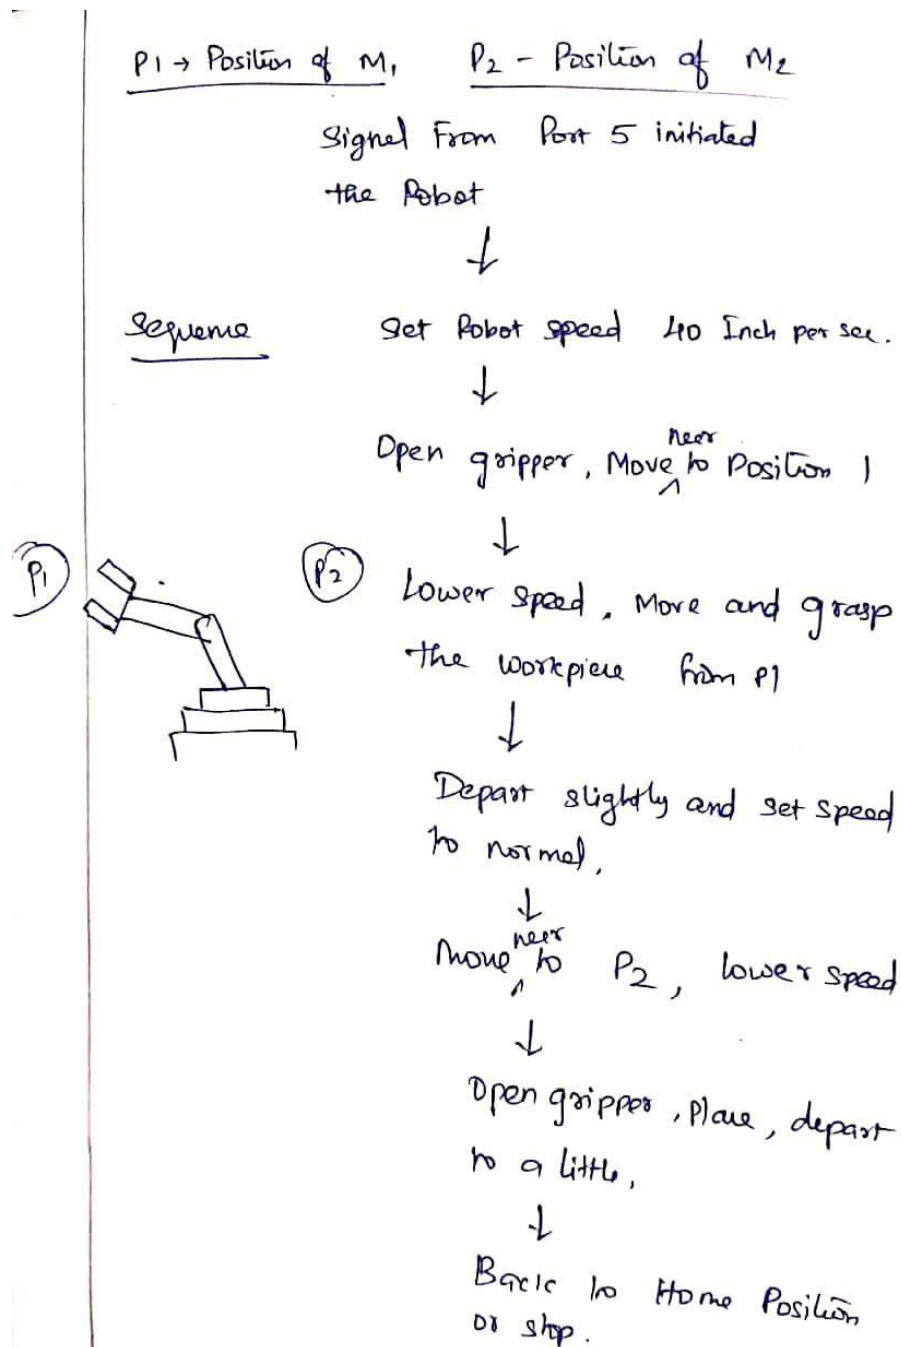 P1 → Position of M1 P2 - Position of M2
Signel From Port 5 initiated
the Robot
↓
Sequence Set Robot speed 40 Inch per sec.
↓
Open gripper, Move near to Position 1
↓
P1 P2 Lower Speed, Move and grasp
the workpiece from P1
↓
Depart slightly and set speed
to normal,
↓
Move near to P2, lower speed
↓
Open gripper, Place, depart
to a little,
↓
Back to Home Position
or stop.